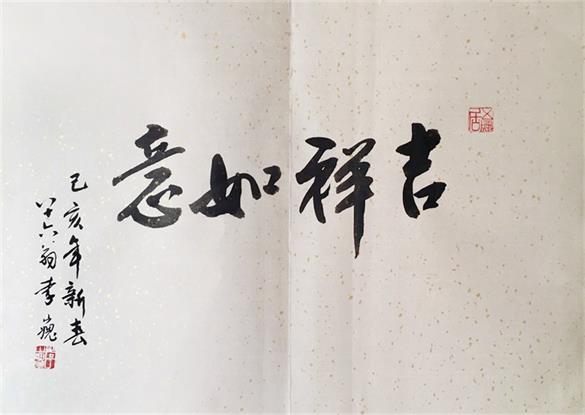 吉祥如意
己亥年新春
八十六翁李巍